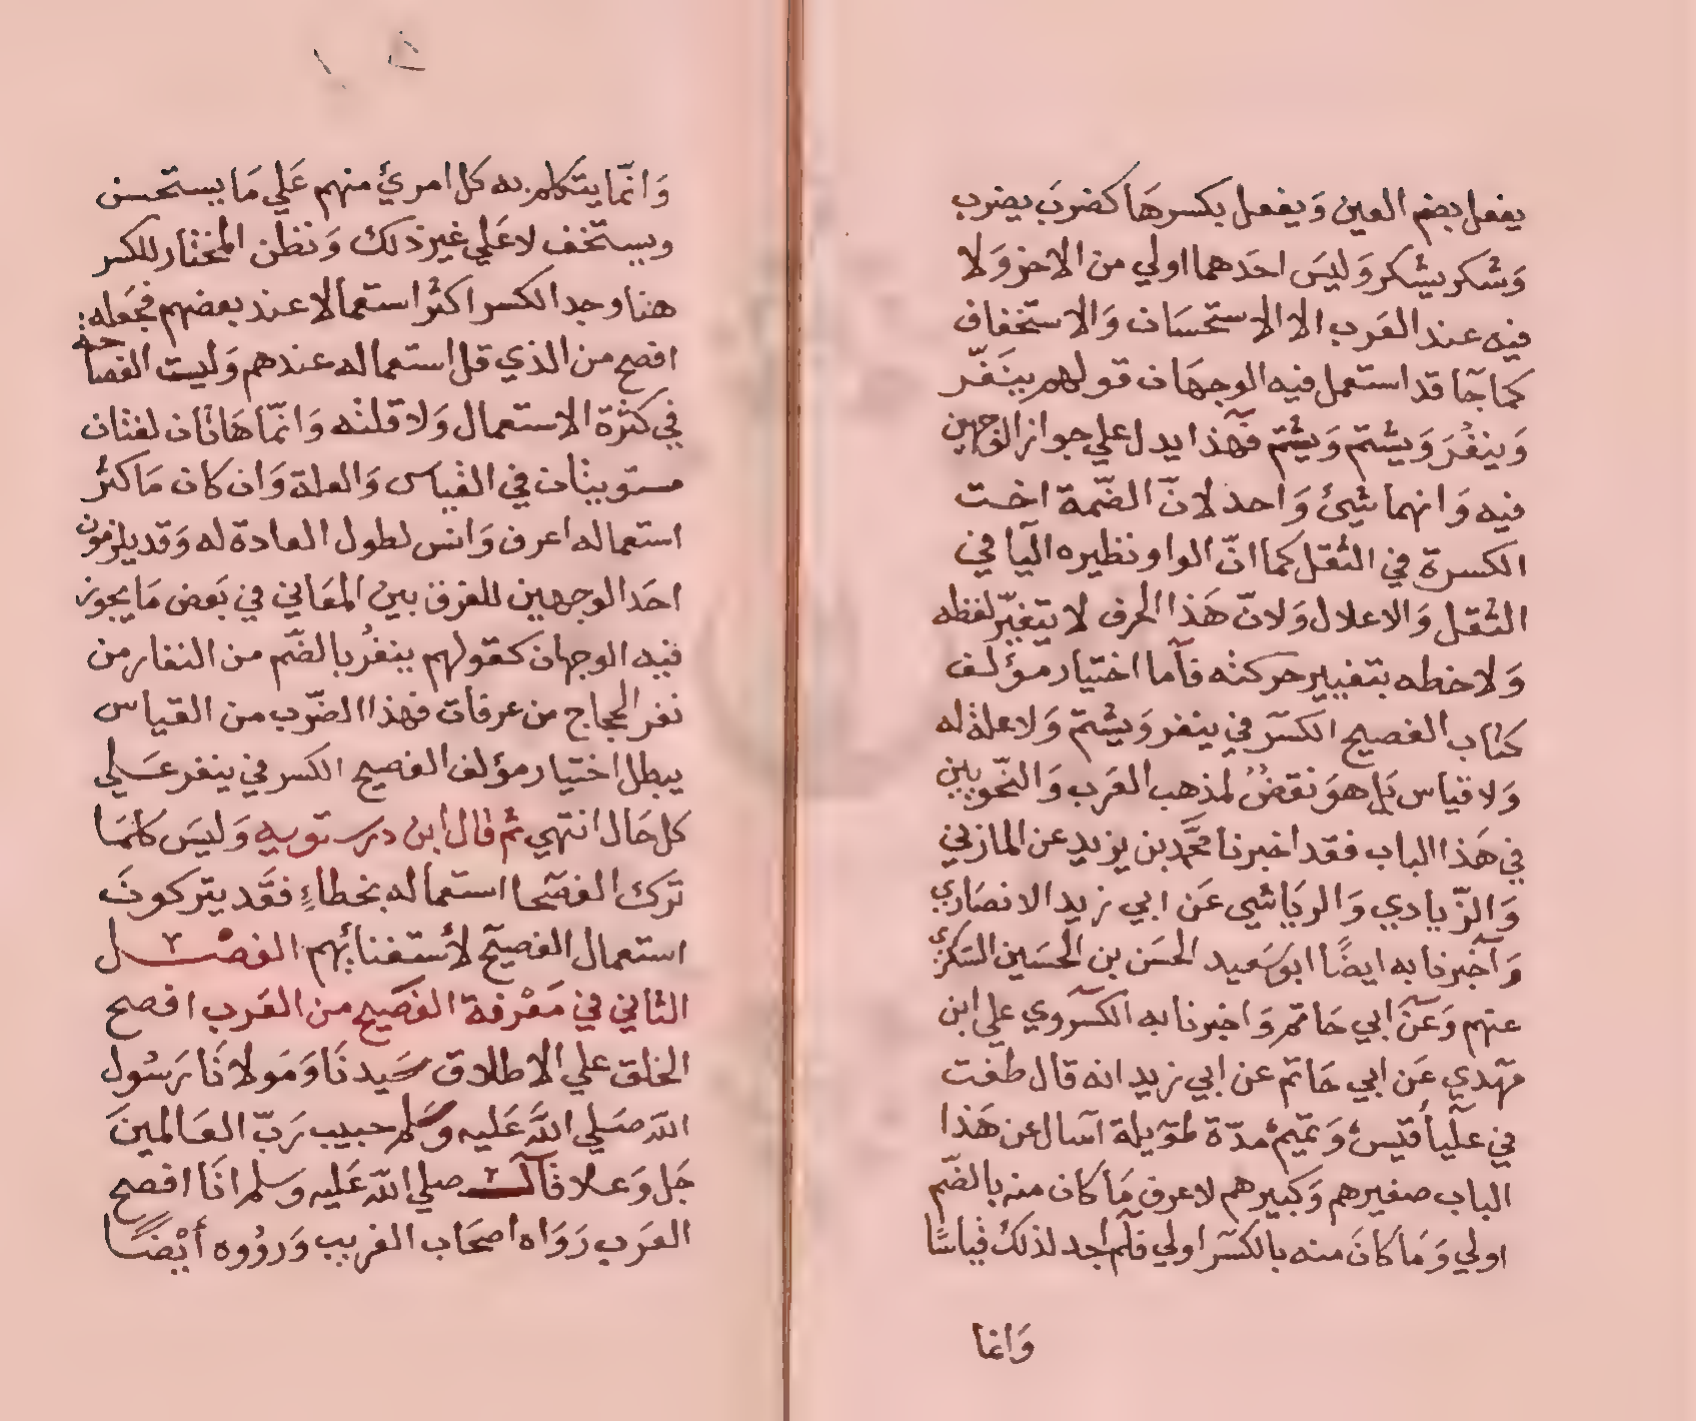 يفعل بضم العين وَيفعل بكسرهَا كضربَ يضرب
وَشكر يشكر وَليسَ احَدهما اولي من الاخر وَلا
فيه عند العَرب الا الاستحسَان وَالاستخفاف
كما جآ قد استعمل فيه الوجهَان قولهم ينَفّر
وَينفُرَ وَيشتم وَيشتم فهّذا يدل علي جواز الوجهين
فيه وَانهما شيئ وَاحد لانّ الضّمة اخت
الكسرة في الثقل كما انّ الواو نظيره اليآ في
الثقل وَالاعلال وَلانّ هَذا الحرف لا يتغيّر لفظه
وَلا خطه بتغيير حركته فآما اختيار مؤلف
كتاب الفصيح الكسر في ينفر وَيشتم وَلا علة له
وَلا قياس بَل هوَ نقضٌ لمذهب العَرب وَالنحّويين
في هَذا الباب فقد اخبرنا محمَّد بن يزيد عن المازني
وَالزّيادي وَالريَاشي عَن ابي زيد الانصَاري
وَآخبرنا به ايضًا ابو سَعيد الحسَن بن الحسَين السكري
عنهم وَعَن ابي حَاتم وَاخبرنا به الكسروي علي ابن
مهَدي عَن ابي حَاتم عن ابي زيد انه قال طفت
في عليآ قيسٌ وَتميم مدّة طويلة اسَال عن هَذا
الباب صغيرهم وَكبيرهم لاعرف مَا كان منه بالضّم
اولي وَمَا كانَ منه بالكسَر اولي فلَم اجد لذلك قياسًا
وَانما
وَانمّا يتَكلم به كل امرئ منهم عَلي مَا يستحسن
ويستخف لا عَلي غير ذلك وَنظن المختار للكسر
هنا وجد الكسر اكثر استعمالا عند بعضهم فجَعله
افصح من الذي قل استعماله عندهم وَليت الفصاحة
في كثرة الاستعمال وَلا قلته وَانمّا هَاتان لغتان
مستويتان في القياس وَالعلة وَان كان مَا كثر
استعماله اعرف وَانس لطول العادة له وَقد يلزمون
احَد الوجهين للفرق بين المعَاني في بَعض مَا يجوز
فيه الوجهان كقولهم ينفُر بالضّم من النفار من
نفر الحجاج من عرفات فهذا الضّرب من القياس
يبطل اختيار مؤلف الفصيح الكسر في ينفر عَلي
كل حَال انتهي ثم قال ابن درستويه وَليسَ كلمَا
تَرك الفصحا استعماله بخطاءٍ فقَد يتركونَ
استعمال الفصيح لأستغنائهم الفصل
الثاني في مَعْرفة الفصَيح من العَرب افصح
الخلق علي الاطلاق سَيدنَا وَمَولانَا رَسُول
اللّه صَلي اللَّه عَليه وَسَلم حبيب رَبّ العَالمينَ
جَل وَعلا قآل صلي اللّه عَليه وَسلم انَا افصح
العَرب رَوَاه اصحَاب الغريب وَروُوه أيْضًا